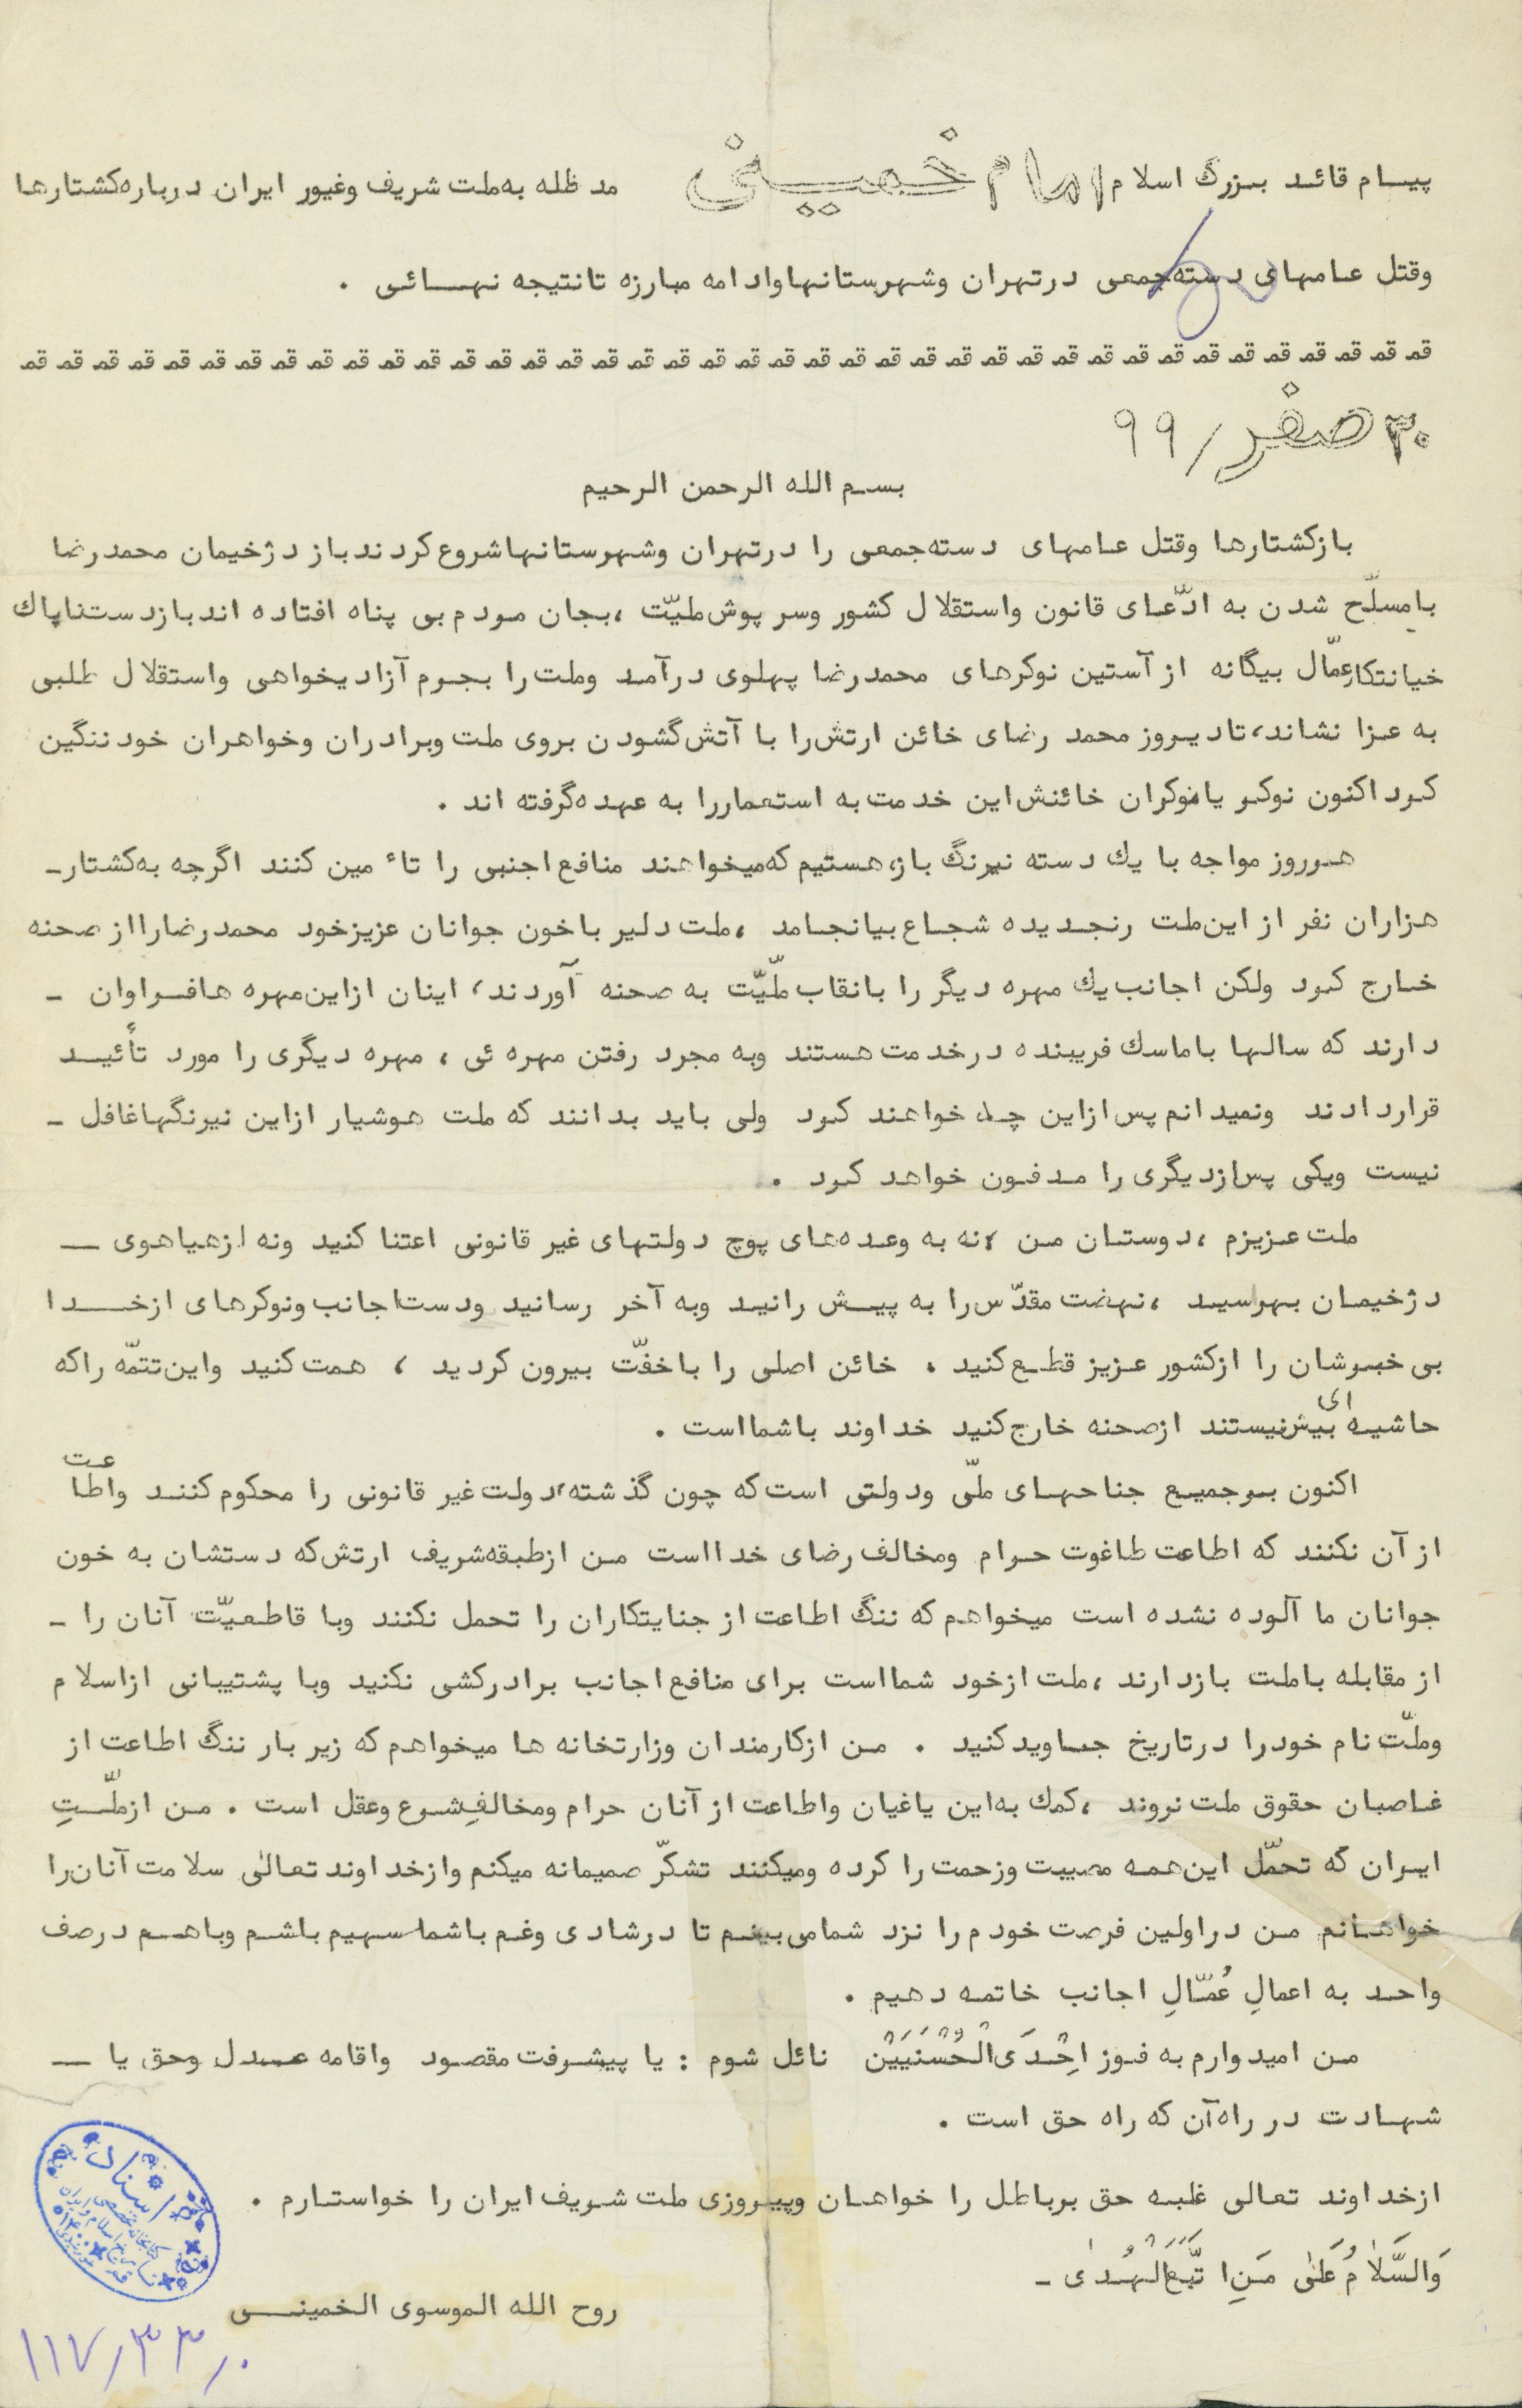 پیام قائد بزرگ اسلام امام خمینی مد ظله به ملت شریف وغیور ایران درباره کشتارها
وقتل عامهای دسته جمعی درتهران وشهرستانها وادامه مبارزه تا نتیجه نهائی .
۳۰ صفر/۹۹
بسم الله الرحمن الرحیم
بازکشتارها وقتل عامهای دسته جمعی را درتهران وشهرستانها شروع کردند باز دژخیمان محمدرضا
با مسلّح شدن به ادّعای قانون واستقلال کشور وسرپوش ملیّت ، بجان مردم بی پناه افتاده اند باز دست ناپاك
خیانتکار عمّال بیگانه از آستین نوکرهای محمدرضا پهلوی درآمد وملت را بجرم آزادیخواهی واستقلال طلبی
به عزا نشاند، تادیروز محمد رضای خائن ارتش را با آتش گشودن بروی ملت وبرادران وخواهران خود ننگین
کرد اکنون نوکر یا نوکران خائنش این خدمت به استعمار را به عهده گرفته اند .
هرروز مواجه با یك دسته نیرنگ باز، هستیم که میخواهند منافع اجنبی را تاٴ مین کنند اگرچه به کشتار-
هزاران نفر از این ملت رنجدیده شجاع بیانجامد ، ملت دلیر با خون جوانان عزیز خود محمدرضا را از صحنه
خارج کرد ولکن اجانب یك مهره دیگر را با نقاب ملیّت به صحنه آوردند، اینان از این مهره ها فراوان -
دارند که سالها با ماسك فریبنده درخدمت هستند وبه مجرد رفتن مهره ئی ، مهره دیگری را مورد تأئید
قراردادند ونمیدانم پس ازاین چه خواهند کرد ولی باید بدانند که ملت هوشیار ازاین نیرنگها غافل -
نیست ویکی پس ازدیگری را مدفون خواهد کرد .
ملت عزیزم ، دوستان من ، نه به وعده های پوچ دولتهای غیر قانونی اعتنا کنید ونه ازهیاهوی —
دژخیمان بهرسید ، نهضت مقدّس را به پیش رانید وبه آخر رسانید ودست اجانب ونوکرهای ازخدا
بی خبرشان را ازکشور عزیز قطع کنید . خائن اصلی را با خفّت بیرون کردید ، همت کنید واین تتمّه را که
حاشیه ای بیش نیستند ازصحنه خارج کنید خداوند باشما است .
اکنون برجمیع جناحهای ملّی ودولتی است که چون گذشته ، دولت غیر قانونی را محکوم کنند واطاعت
از آن نکنند که اطاعت طاغوت حرام ومخالف رضای خدا است من ازطبقه شریف ارتش که دستشان به خون
جوانان ما آلوده نشده است میخواهم که ننگ اطاعت از جنایتکاران را تحمل نکنند وبا قاطعیّت آنان را -
از مقابله با ملت بازدارند ، ملت ازخود شما است برای منافع اجانب برادرکشی نکنید وبا پشتیبانی ازاسلام
وملّت نام خود را درتاریخ جاوید کنید . من ازکارمندان وزارتخانه ها میخواهم که زیر بار ننگ اطاعت از
غاصبان حقوق ملت نروند ، کمك به این یاغیان واطاعت از آنان حرام ومخالفِ شرع وعقل است . من از ملّتِ
ایران که تحمّل این همه مصیبت وزحمت را کرده ومیکنند تشکّر صمیمانه میکنم وازخداوند تعالٰی سلامت آنان را
خواهانم من دراولین فرصت خودم را نزد شما می بینم تا درشادی وغم باشما سهیم باشم وباهم درصف
واحد به اعمالِ عُمّالِ اجانب خاتمه دهیم .
من امیدوارم به فوز اِحْدَی الْحُسْنَیَیْن نائل شوم : یا پیشرفت مقصود واقامه عدل وحق یا —
شهادت در راه آن که راه حق است .
ازخداوند تعالی غلبه حق برباطل را خواهان وپیروزی ملت شریف ایران را خواستارم .
وَالسَّلاٰمُ عَلٰی مَنِ اتَّبَعَ الْهُدٰی -
روح الله الموسوی الخمینی
اسناد
۱۱۷/۳۳/۰